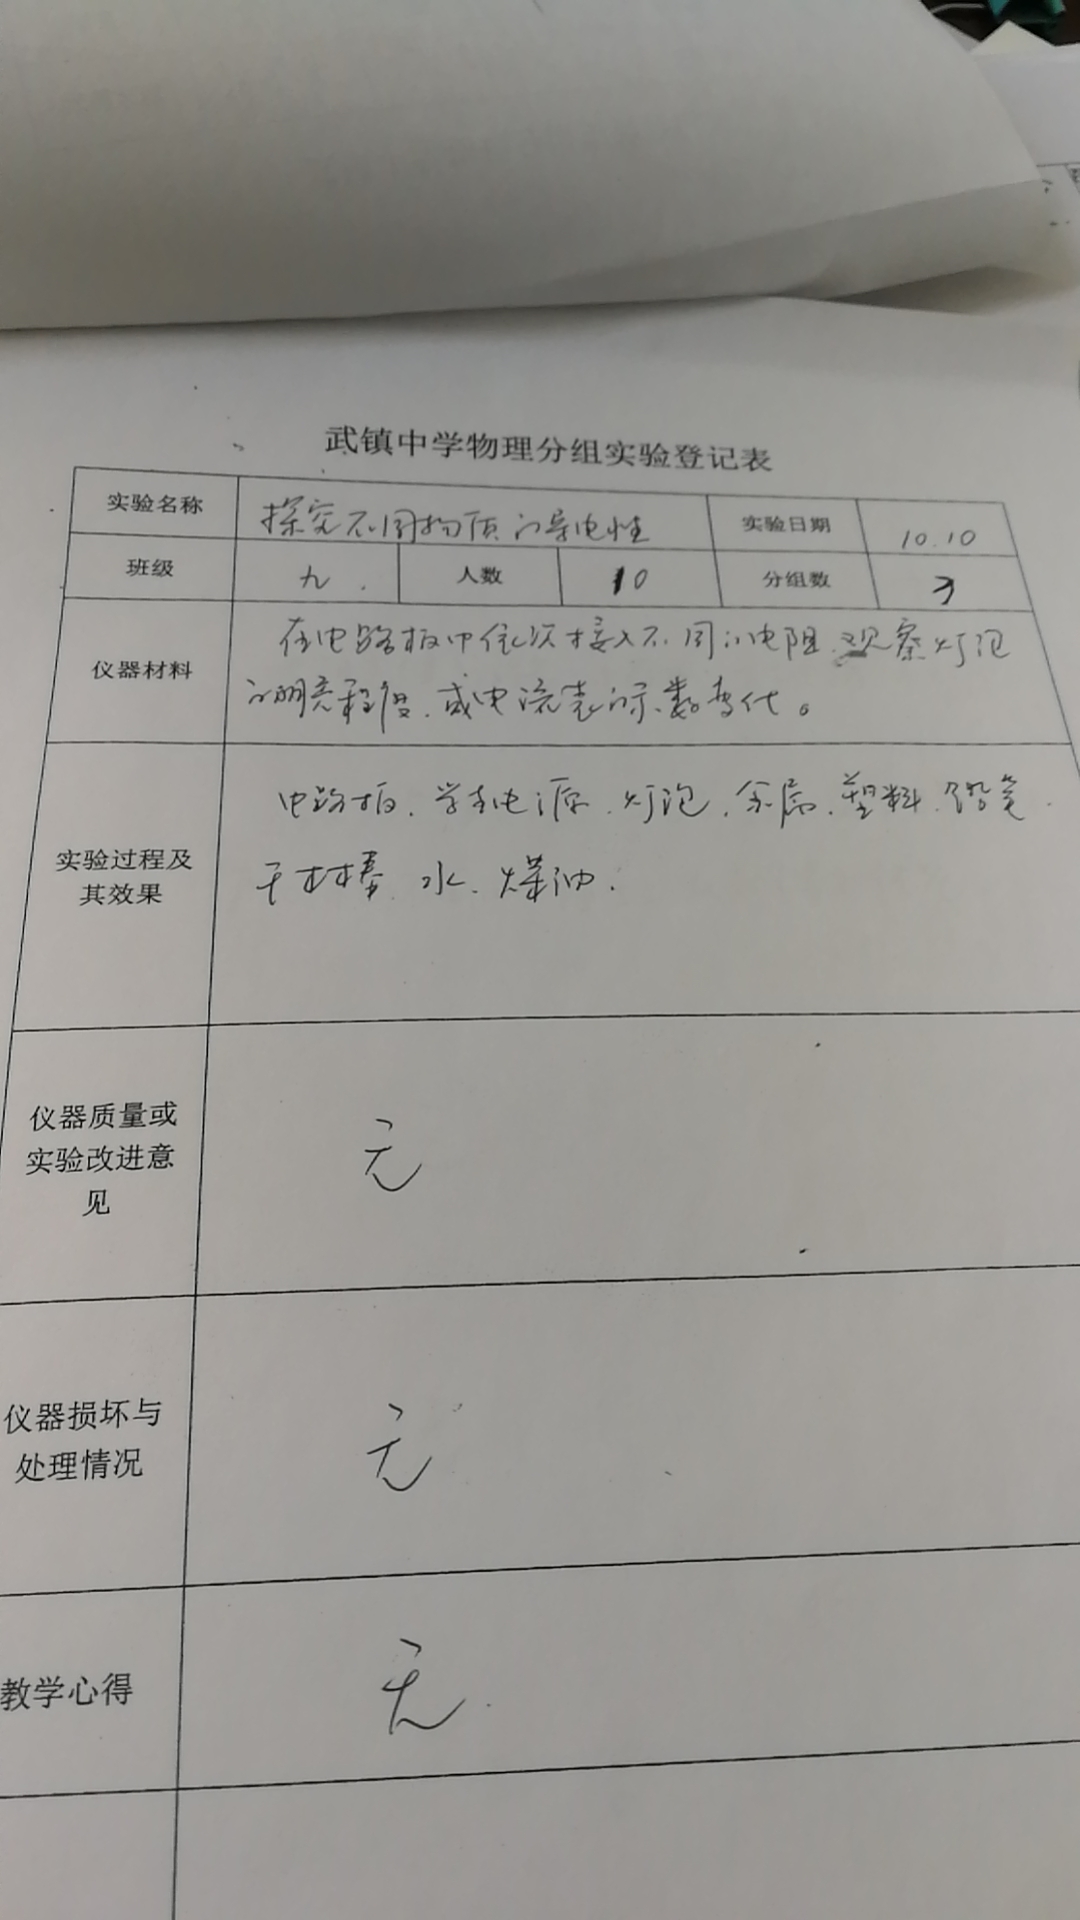 武镇中学物理分组实验登记表
实验名称 探究不同物质的导电性 实验日期 10.10
班级 九. 人数 10 分组数 3
仪器材料 在电路板中依次接入不同的电阻.观察灯泡
的明亮程度.或电流表的示数变化。
实验过程及其效果 电路板.学生电源.灯泡.金属.塑料.铅笔.
干木棒.水.煤油.
仪器质量或实验改进意见 无
仪器损坏与处理情况 无
教学心得 无.